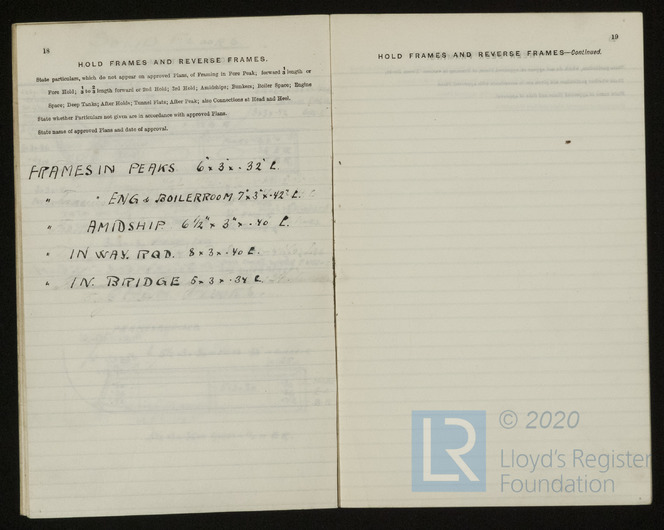 18
HOLD FRAMES AND REVERSE FRAMES.
State particulars, which do not appear on approved Plans, of Framing in Fore Peak; forward ⅓ length or
Fore Hold; ⅓ to ⅔ length forward or 2nd Hold; 3rd Hold; Amidships; Bunkers; Boiler Space; Engine
Space; Deep Tanks; After Holds; Tunnel Flats; After Peak; also Connections at Head and Heel.
State whether Particulars not given are in accordance with approved Plans.
State name of approved Plans and date of approval.
FRAMES IN PEAKS 6" x 3" x .32" L.
" " ENG & BOILERROOM 7" x 3" x .42" L.
" AMIDSHIP 6½" x 3" x .40 L.
" IN WAY. RQD. 8 x 3 x .40 L.
" IN BRIDGE 5 x 3 x .34 L.
19
HOLD FRAMES AND REVERSE FRAMES—Continued.
LR
© 2020
Lloyd's Register
Foundation